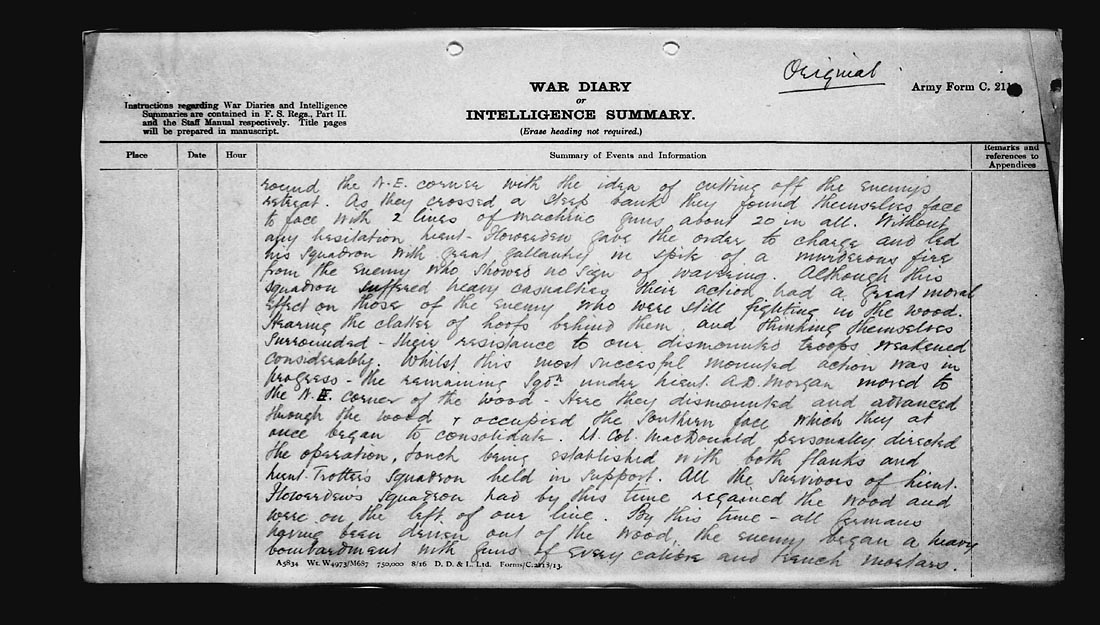 Original
WAR DIARY
or
INTELLIGENCE SUMMARY.
(Erase heading not required.)
Army Form C. 211
Instructions regarding War Diaries and Intelligence
Summaries are contained in F. S. Regs., Part II.
and the Staff Manual respectively. Title pages
will be prepared in manuscript.
Place Date Hour Summary of Events and Information Remarks and
references to
Appendices
round the N-E. corner with the idea of cutting off the enemy's
retreat. As they crossed a steep bank they found themselves face
to face with 2 lines of machine guns about 20 in all. Without
any hesitation Lieut-Flowerdew gave the order to charge and led
his Squadron with great gallantry in spite of a murderous fire
from the enemy who showed no sign of wavering. Although this
Squadron suffered heavy casualties their action had a great moral
effect on those of the enemy who were still fighting in the wood.
Hearing the clatter of hoofs behind them and thinking themselves
surrounded - their resistance to our dismounted troops weakened
considerably. Whilst this most successful mounted action was in
progress - the remaining Sqdn under Lieut. A.D. Morgan moved to
the N.E. corner of the wood - Here they dismounted and advanced
through the wood & occupied the Southern face which they at
once began to consolidate. Lt. Col. MacDonald personally directed
the operation, touch being established with both flanks and
Lieut. Trotter's Squadron held in support. All the survivors of Lieut.
Flowerdew's Squadron had by this time regained the wood and
were on the left of our line. By this time - all Germans
having been driven out of the wood, the enemy began a heavy
bombardment with guns of every calibre and trench mortars.
A5834 Wt. W4973/M687 750,000 8/16 D. D. & L. Ltd. Forms/C.2118/13.